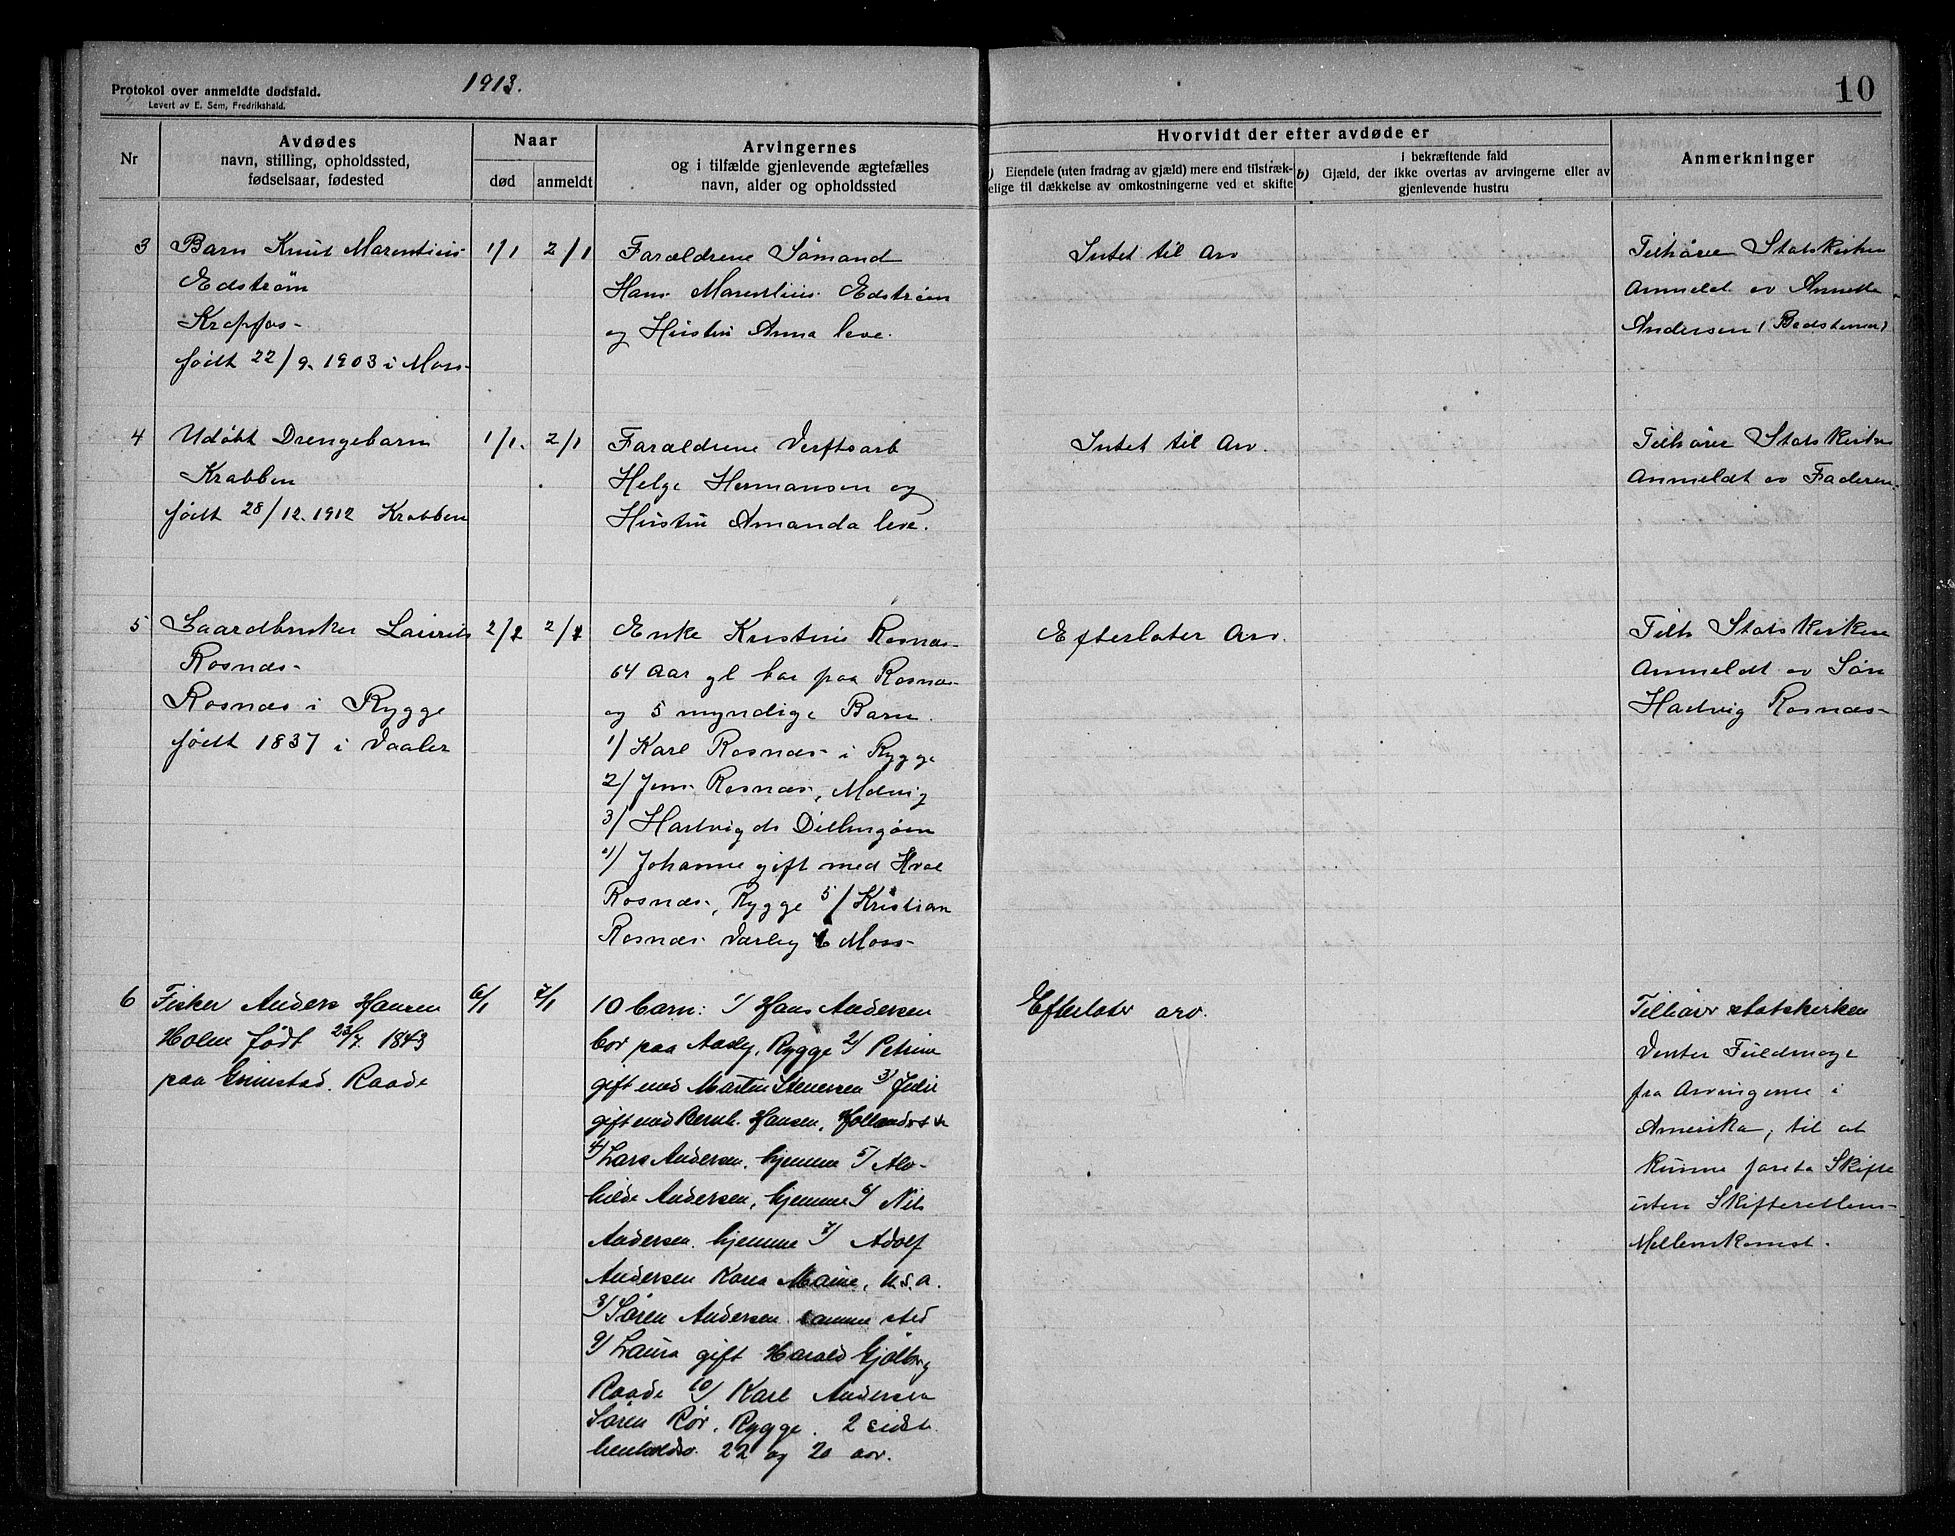 Protokol over anmeldte dødsfald.
Levert av E. Sem, Fredrikshald.
1913.
10
Nr
Avdødes
navn, stilling, opholdssted,
fødselsaar, fødested
Naar
død
anmeldt
Arvingernes
og i tilfælde gjenlevende ægtefælles
navn, alder og opholdssted
Hvorvidt der efter avdøde er
Eiendele (uten fradrag av gjæld) mere end tilstræk-
kelige til dækkelse av omkostningerne ved et skifte
i bekræftende fald
b) Gjæld, der ikke overtas av arvingerne eller av
gjenlevende hustru
Anmerkninger
3
Barn Knut Marentius
Edstrøm
Krapfos-
født 22/9. 1903 i Moss-
1/1
2/1
Forældrene Sømand
Hans Marentius Edstrøm
og Hustru Anna leve.
Intet til Arv
Tilhører Statskirken
Anmeldt av Annette
Andersen (Bedstemor)
4
Udøbt Drengebarn
Krabben
født 28/12. 1912 Krabben
1/1.
2/1
Forældrene Verftsarb
Helge Hermansen og
Hustru Amanda leve.
Intet til Arv.
Tilhører Statskirken
Anmeldt av Faderen.
5
Gaardbruker Laurits
Rosnæs-
Rosnæs i Rygge
født 1837 i Vaaler
2/1
2/1
Enke Kristine Rosnæs-
64 Aar gl bor paa Rosnæs-
og 5 myndige Barn.
1/ Karl Rosnæs- i Rygge
2/ Jens Rosnæs-, Melvig
3/ Hartvig ds Dillingøen
4/ Johanne gift med
Rosnæs-, Rygge 5/ Kristian
Rosnæs- Varley Moss-
Efterlater Arv.
Tilh Statskirken
Anmeldt av Søn
Hartvig Rosnæs-
6
Fisker Anders Hansen
Holm født 23/7. 1843
paa Grimstad. Raade
6/1
7/1
10 barn: 1/ Hans Andersen
bor paa Aasly, Rygge 2/ Petrine
gift med Martin Stenersen 3/
gift med Bernh. Hansen,
4/ Lars Andersen. hjemme 5/ Alv-
hilde Andersen, hjemme 6/ Nils
Andersen. hjemme 7/ Adolf
Andersen Maine, U.S.A.
8/ Søren Andersen samme sted
9/ Laura gift Harald Gjølberg
Raade 10/ Karl Andersen
Søren Rør, Rygge. 2 sidst
henholdsv. 22 og 20 aar.
Efterlater arv.
Tilhører statskirken
Venter Fuldmagt
fra Arvingerne i
Amerika, til at
kunne foreta Skifte
uten Skifterettens-
Mellemkomst.